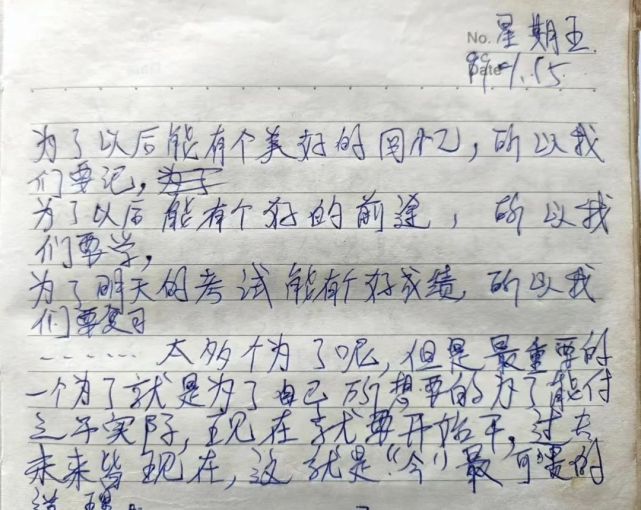 No. 星期五
Date 99.1.15.
为了以后能有个美好的回忆，所以我
们要记，为了
为了以后能有个好的前途，所以我
们要学，
为了明天的考试能有个好成绩，所以我
们要复习
……太多个为了呢，但是最重要的
一个为了就是为了自己所想要的为了能付
之于实际，现在就要开始干，过去
未来皆现在，这就是“今”最可贵的
道理。